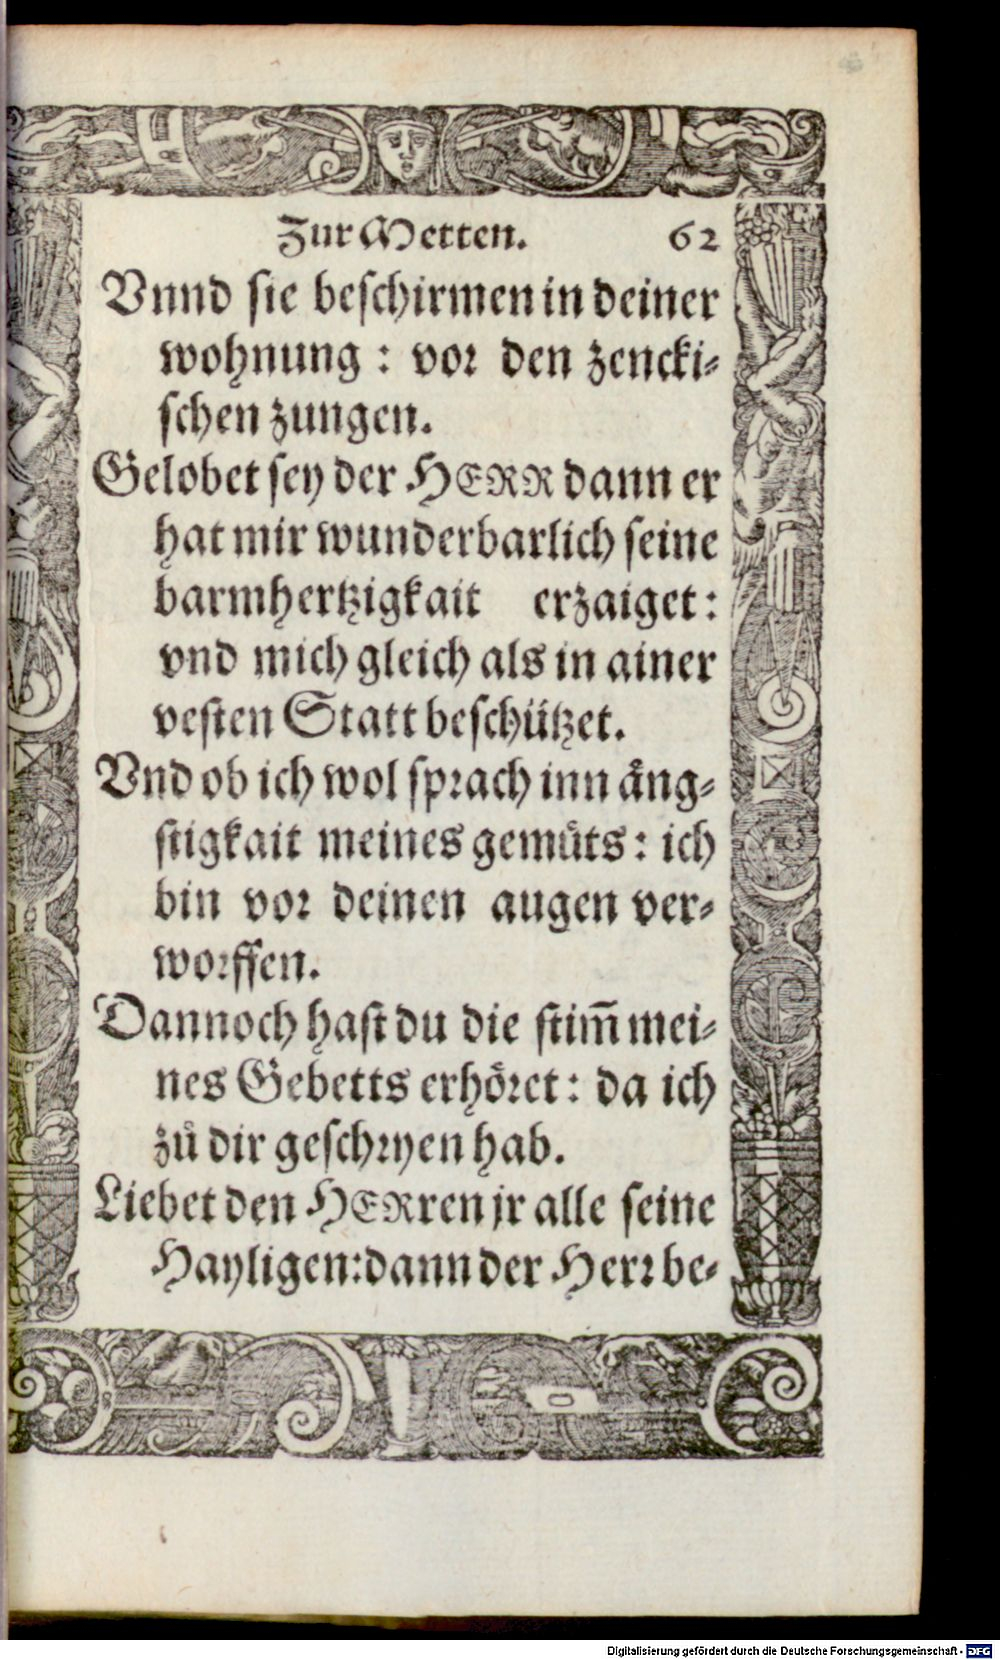 Zur Metten. 62
Vnnd sie beschirmen in deiner
wohnung : vor den zencki⸗
schen zungen.
Gelobet sey der HERR dann er
hat mir wunderbarlich seine
barmhertzigkait erzaiget:
vnd mich gleich als in ainer
vesten Statt beschützet.
Vnd ob ich wol sprach inn aͤng⸗
stigkait meines gemuͤts: ich
bin vor deinen augen ver⸗
worffen.
Dannoch hast du die stim̃ mei⸗
nes Gebetts erhoͤret: da ich
zuͦ dir geschryen hab.
Liebet den HERRen jr alle seine
Hayligen: dann der Herr be⸗
Digitalisierung gefördert durch die Deutsche Forschungsgemeinschaft - DFG